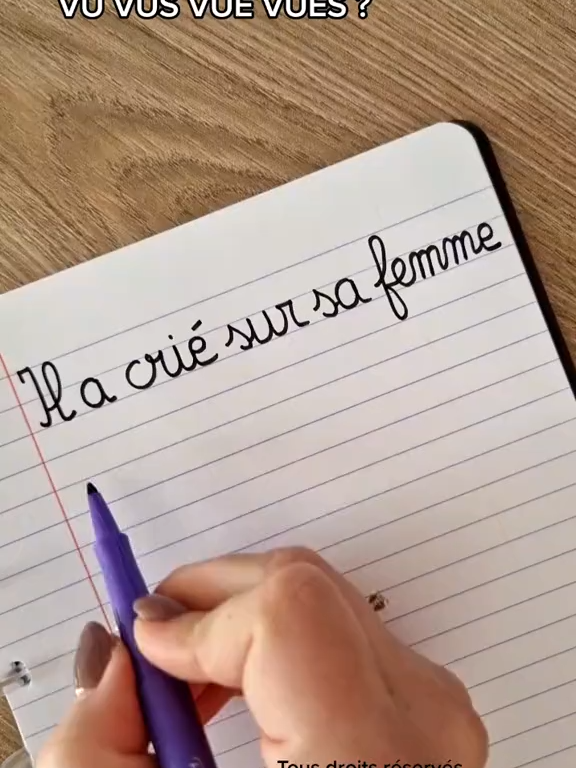 VU VUS VUE VUES ?
Il a crié sur sa femme
Tous droits réservés